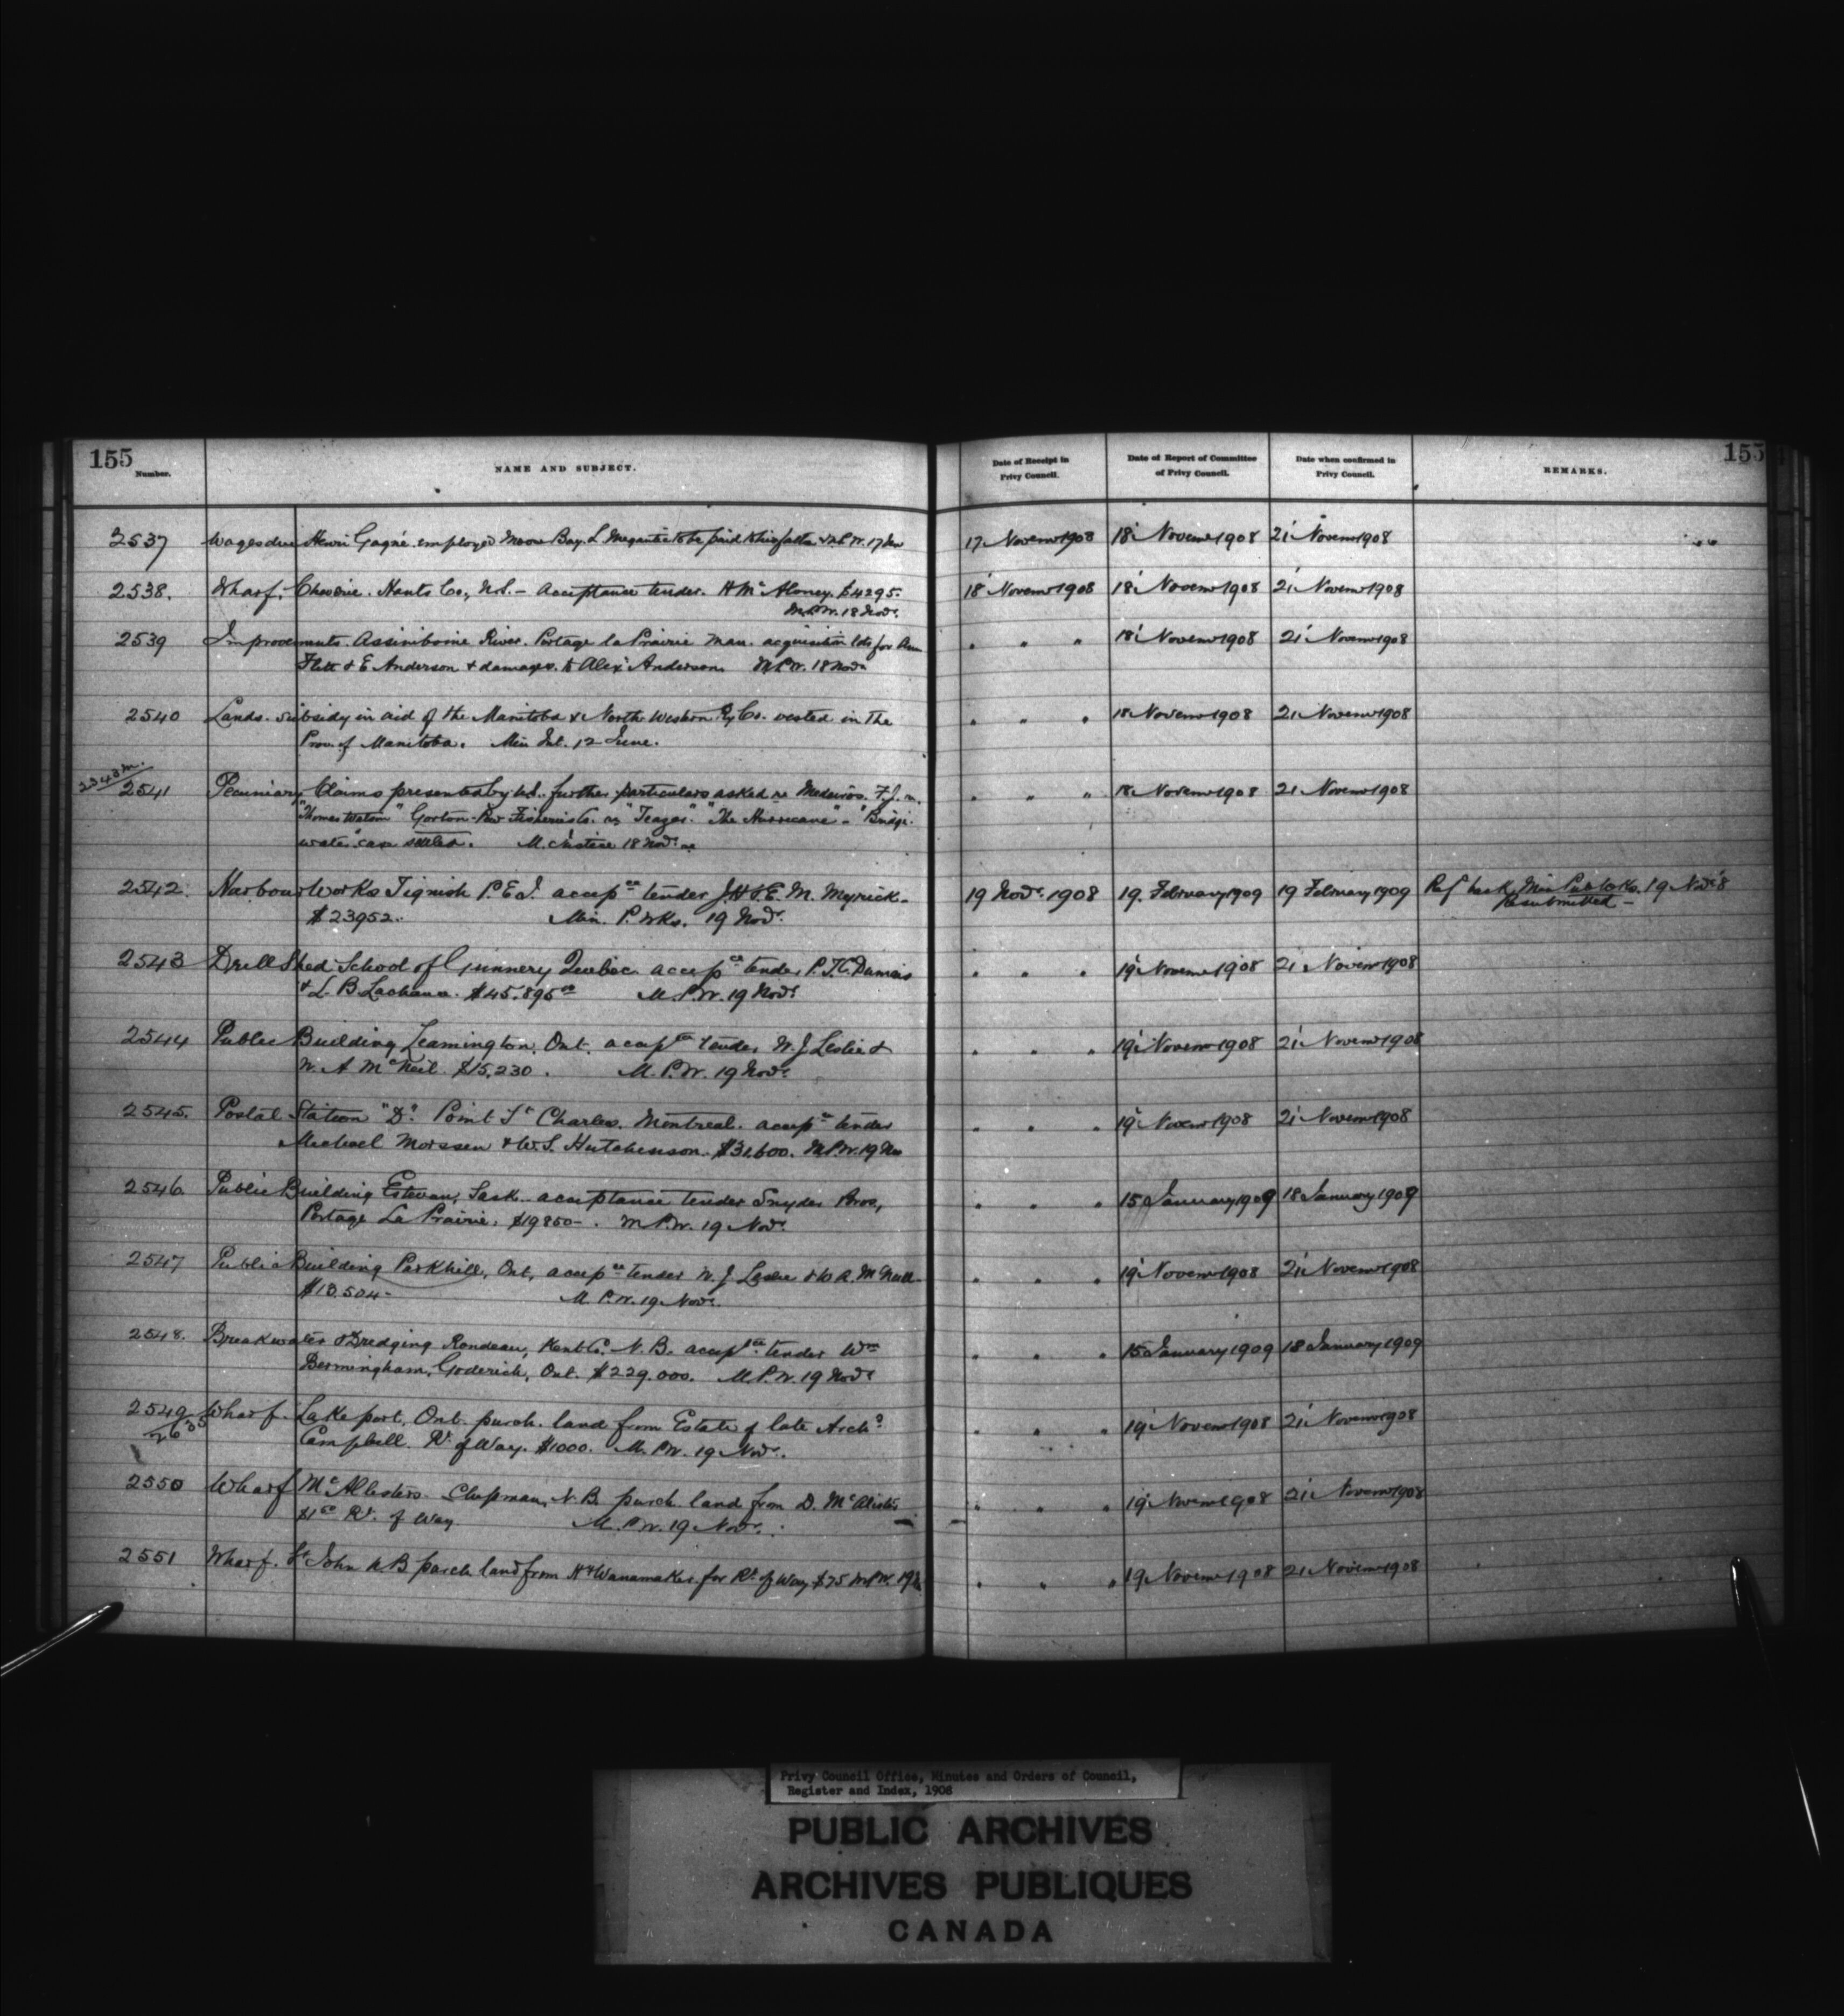 155
155
Number.
NAME AND SUBJECT.
Date of Receipt in
Privy Council.
Date of Report of Committee
of Privy Council.
Date when confirmed in
Privy Council.
REMARKS.
2537 Wages due Henri Gagné employed Moose Bay L Megantic to be paid M.P.W. 17 Nov
17 Novemr 1908 18 Novemr 1908 21 Novemr 1908
2538. Wharf. Cheverie. Hants Co., N.S. - Acceptance tender. H McAloney. $4295.
M.P.W. 18 Novr.
18 Novemr 1908 18 Novemr 1908 21 Novemr 1908
2539 Improvements. Assiniboine River. Portage la Prairie Man. acquisition lds for Ann
Flett & E Anderson & damages to Alexr Anderson. M.P.W. 18 Novr
" " " 18 Novemr 1908 21 Novemr 1908
2540 Lands. subsidy in aid of the Manitoba & North Western Ry Co. vested in the
Prov. of Manitoba. Min Int. 12 June.
" " " 18 Novemr 1908 21 Novemr 1908
2541 Pecuniary Claims presented by U.S. further particulars asked re Medeiros. F.J.
Gorton-Pew Fisheries Co. "The Hurricane" - "Bridge-
water" case settled. M. Justice 18 Novr
" " " 18 Novemr 1908 21 Novemr 1908
2542. Harbour Works Tignish P.E.I. accepce tender J.H & E.M. Myrick -
$23952. Min. P. Wks. 19 Novr.
19 Novr. 1908 19 February 1909 19 February 1909 Ref back Min Pub Wks. 19 Novr 8
Resubmitted -
2543 Drill Shed School of Gunnery Quebec accepce tender P.J.C. Dumais
& L. B. Lachance. $45,895.00 M.P.W. 19 Novr
" " " 19 Novemr 1908 21 Novemr 1908
2544 Public Building Leamington. Ont. accepce tender W. J Leslie &
W. A McNeil $15,230. M. P.W. 19 Novr.
" " " 19 Novemr 1908 21 Novemr 1908
2545. Postal Station "D". Point St Charles. Montreal. accepce tender
Michael Morssen & W.S. Hutchinson. $31,600. M.P.W. 19 Nov
" " " 19 Novemr 1908 21 Novemr 1908
2546. Public Building Estevan, Sask. acceptance tender Snyder Bros,
Portage La Prairie. $19850-. M P.W. 19 Novr.
" " " 15 January 1909 18 January 1909
2547 Public Building Parkhill, Ont, accepce tender W. J Leslie & W A. McNeill
$18.504- M. P.W. 19 Novr.
" " " 19 Novemr 1908 21 Novemr 1908
2548. Breakwater & Dredging Rondeau, Kent Co. N.B. accepce tender Wm
Bermingham, Goderich, Ont. $229.000. M.P.W. 19 Novr
" " " 15 January 1909 18 January 1909
2549 Wharf. Lakeport, Ont. purch. land from Estate of late Archd
2635
Campbell. Rt of Way. $1000. M. P.W. 19 Novr.
" " " 19 Novemr 1908 21 Novemr 1908
2550 Wharf McAllisters. Chipman, N.B. purch. land from D. McAlister
$1.00 Rt. of Way. M. P.W. 19 Novr.
" " " 19 Novemr 1908 21 Novemr 1908
2551 Wharf. St John N B purch land from Wanamaker for Rt of Way $75 M.P.W. 19
" " " 19 Novemr 1908 21 Novemr 1908
Privy Council Office, Minutes and Orders of Council,
Register and Index, 1908
PUBLIC ARCHIVES
ARCHIVES PUBLIQUES
CANADA